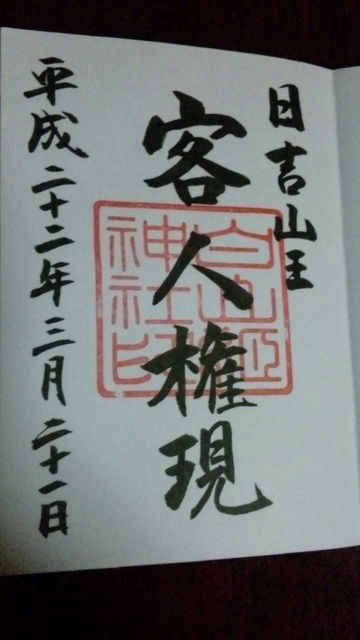 日吉山王
客人権現
白山姫神社印
平成二十二年三月二十一日